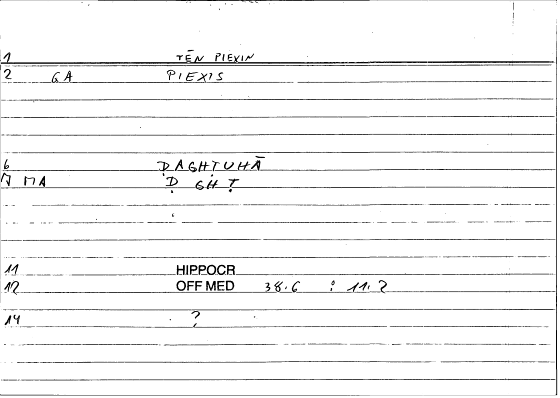 1 TĒN PIEXIN
2 GA PIEXIS
6 ḌAGHṬUHĀ
7 MA Ḍ GH Ṭ
11 HIPPOCR
12 OFF MED 38.6 : 11.2
14 ?